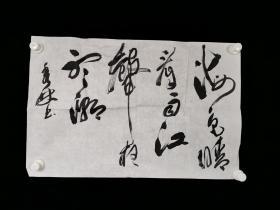 海色晴
看雨江
聲夜
聽潮